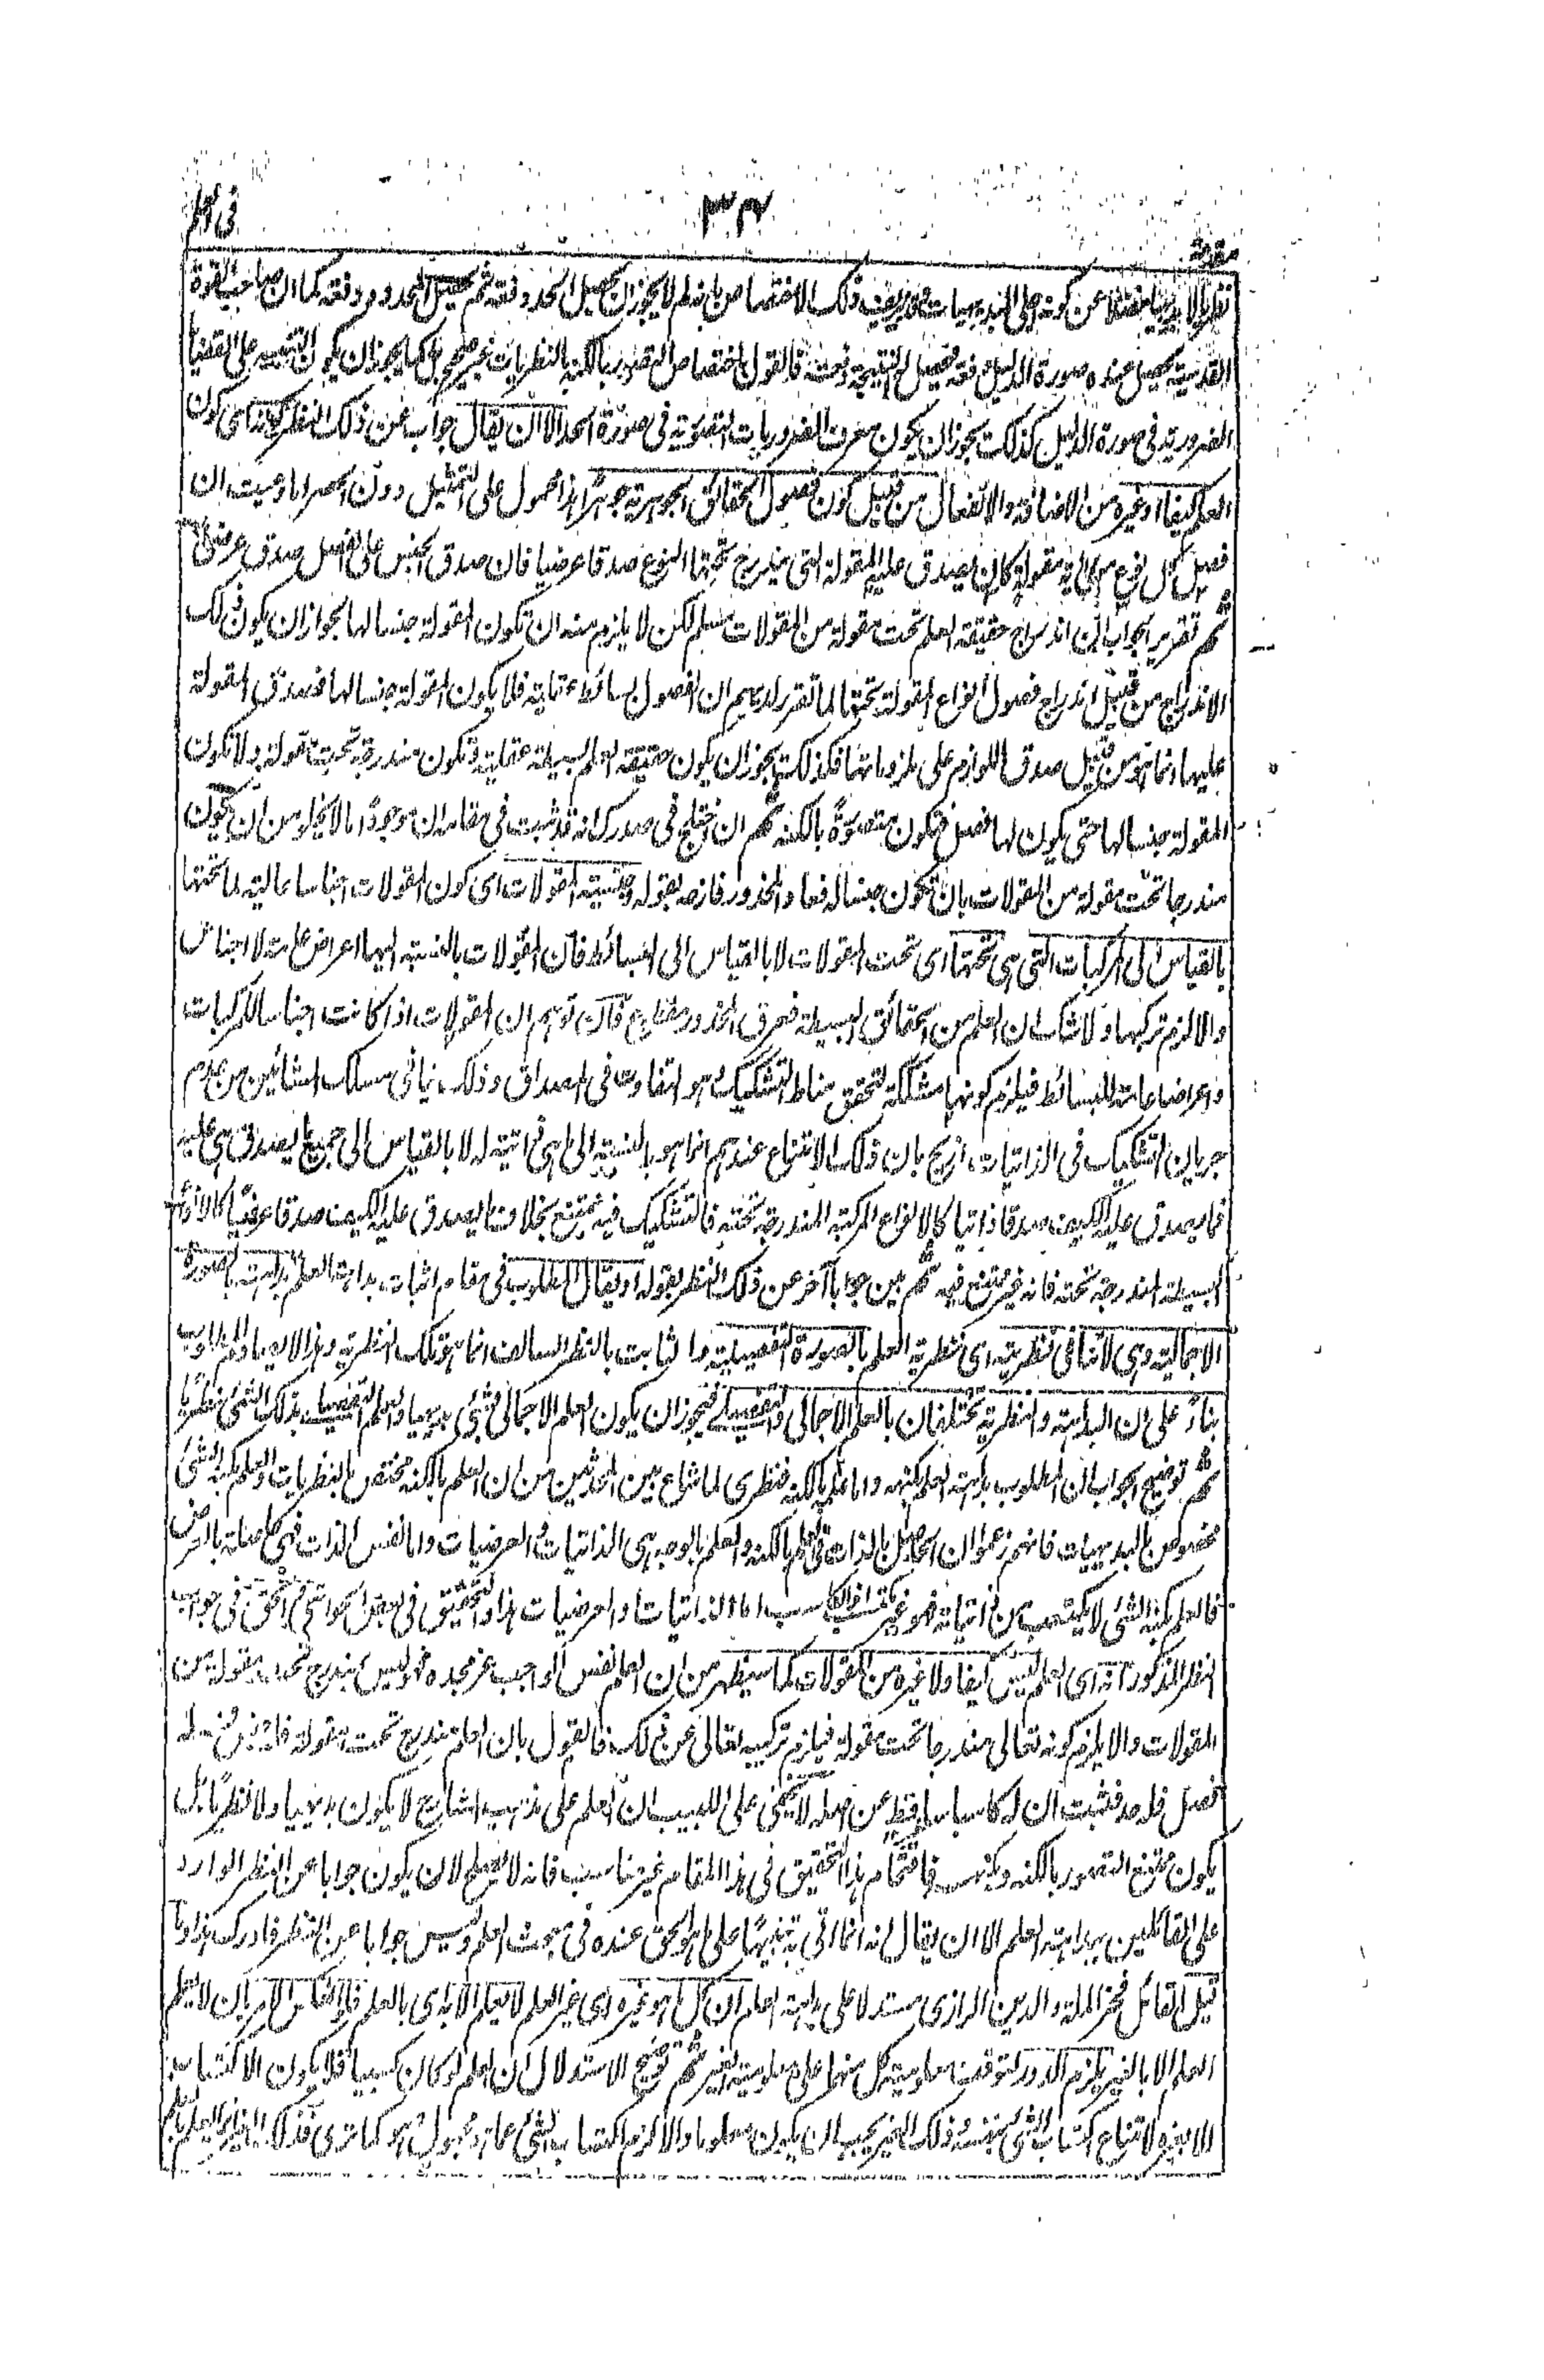 مقدمة
٣٤
في العلم
نظريا لا بديهيا فضلا عن كونه اجلى البديهيات ذلك الاختصاص بانه لم لا يجوز ان يحصل الحد دفعة ثم يحصل المحدود دفعة كما ان صاحب القوة
القدسية يحصل عنده صورة الدليل دفعة فيحصل النتيجة دفعة فالقول باختصاص التصور بالكنه بالنظريات غير صحيح بل كما يجوز ان يكون التنبيه على القضايا
الضرورية في صورة الدليل كذلك يجوز ان يكون معرف الضروريات التصورية في صورة الحد الا ان يقال جواب عن ذلك النظر كونه اى كون
العلم كيفا او غيره من الاضافة والانفعال من قبيل كون فصول الحقائق الجوهرية جوهرا هذا محمول على التمثيل دون الحصر اما وعيت ان
فصل كل نوع من اية مقولة كان يصدق عليه المقولة التى يندرج تحتها النوع صدقا عرضيا فان صدق الجنس على الفصل صدق عرضى
ثم تقرير الجواب ان اندراج حقيقة العلم تحت مقولة من المقولات مسلم لكن لا يلزم منه ان تكون المقولة جنسا لها لجواز ان يكون ذلك
الاندراج من قبيل اندراج فصول انواع المقولة تحتها لما تقرر لديهم ان الفصول بسائط عقلية فلا يكون المقولة جنسا لها فصدق المقولة
عليها انما هو من قبيل صدق اللوازم على ملزوماتها فكذلك يجوز ان يكون حقيقة العلم البسيطة عقلية وتكون مندرجة تحت مقولة ولا تكون
المقولة جنسا لها حتى يكون لها فصل فتكون متصورة بالكنه ثم ان اختلج في صدرك انه قد ثبت في مقامه ان موجودا ما لا يخلو من ان يكون
مندرجا تحت مقولة من المقولات بان تكون جنسا له فعاد المحذور فازحه بقوله وجنسية المقولات اى كون المقولات اجناسا عالية لما تحتها
بالقياس الى المركبات التى هى تحتها اى تحت المقولات لا بالقياس الى البسائط فان المقولات بالنسبة اليها اعراض عامة لا اجناس
والا لزم تركبها ولا شك ان العلم من الحقائق البسيطة فعرق المحذور مقلوع فان توهم ان المقولات اذا كانت اجناسا للمركبات
واعراضا عامة للبسائط فيلزم كونها مشككة لتحقق مناط التشكيك وهو التفاوت في المصداق وذلك ينافى مسلك المشائين من عدم
جريان التشكيك في الذاتيات ازيح بان ذلك الامتناع عندهم انما هو بالنسبة الى ما هى ذاتية له لا بالقياس الى جميع ما يصدق هى عليه
فما يصدق عليه الكيف صدقا ذاتيا كالانواع المركبة المندرجة تحته فالتشكيك فيه ممتنع بخلاف ما يصدق عليه الكيف صدقا عرضيا كالانواع
البسيطة المندرجة تحته فانه غير ممتنع فيه ثم بين جوابا آخر عن ذلك النظر بقوله او يقال المطلوب في مقام اثبات بداهة العلم بداهته بالصورة
الاجمالية وهى لا تنافى نظريته اى نظرية العلم بالصورة التفصيلية والثابت بالنظر السالف انما هو تلك النظرية وهذا لا يصادم المطلوب
بناء على ان البداهة والنظرية تختلفان بالعلم الاجمالى والتفصيلى فيجوز ان يكون العلم الاجمالى بشئ بديهيا والعلم التفصيلى بذلك الشئ نظريا
ثم توضيح الجواب ان المطلوب بداهة العلم بكنهه واما العلم بالكنه فنظرى لما شاع بين المحدثين من ان العلم بالكنه مختص بالنظريات والعلم بكنه الشئ
مخصوص بالبديهيات فانهم زعموا ان الحاصل بالذات في العلم بالكنه والعلم بالوجه هى الذاتيات والعرضيات واما نفس الذات فهى حاصلة بالعرض
فالعلم بكنه الشئ لا يكتسب من ذاتياته فهو غير مكتسب اذ الكاسب اما الذاتيات والعرضيات هذا والتحقيق في بعض الحواشى ثم الحق في جواب
النظر المذكور انه اى العلم ليس كيفا ولا غيره من المقولات كما سيظهر من ان العلم نفس الواجب عز مجده فهو ليس بمندرج تحت مقولة من
المقولات والا يلزم كونه تعالى مندرجا تحت مقولة فيلزم تركيبه تعالى عن ذلك فالقول بان العلم مندرج تحت مقولة فله جنس فله
فصل فله حد فثبت ان له كاسبا ساقط عن اصله لا يخفى على اللبيب ان العلم على مذهب الشارح لا يكون بديهيا ولا نظريا بل
يكون ممتنع التصور بالكنه وبكنهه فاقتحام هذا التحقيق في هذا المقام غير مناسب فانه لا يصلح لان يكون جوابا عن النظر الوارد
على القائلين ببداهة العلم الا ان يقال انه انما اتى به تنبيها على ما هو الحق عنده في مبحث العلم وليس جوابا عن النظر فادرك هذا وما
قيل القائل فخر الملة والدين الرازى مستدلا على بداهة العلم ان كل ما هو غيره اى غير العلم لا يعلم الا به اى بالعلم فلو انعكس الامر بان لا يعلم
العلم الا بالغير يلزم الدور لتوقف معلومية كل منهما على معلومية الغير ثم توضيح الاستدلال ان العلم لو كان كسبيا فلا يكون الاكتساب
الا بغيره لامتناع اكتساب الشئ بنفسه وذلك الغير يجب ان يكون معلوما والا لزم اكتساب الشئ عما هو مجهول وهو كما ترى فذلك الغير